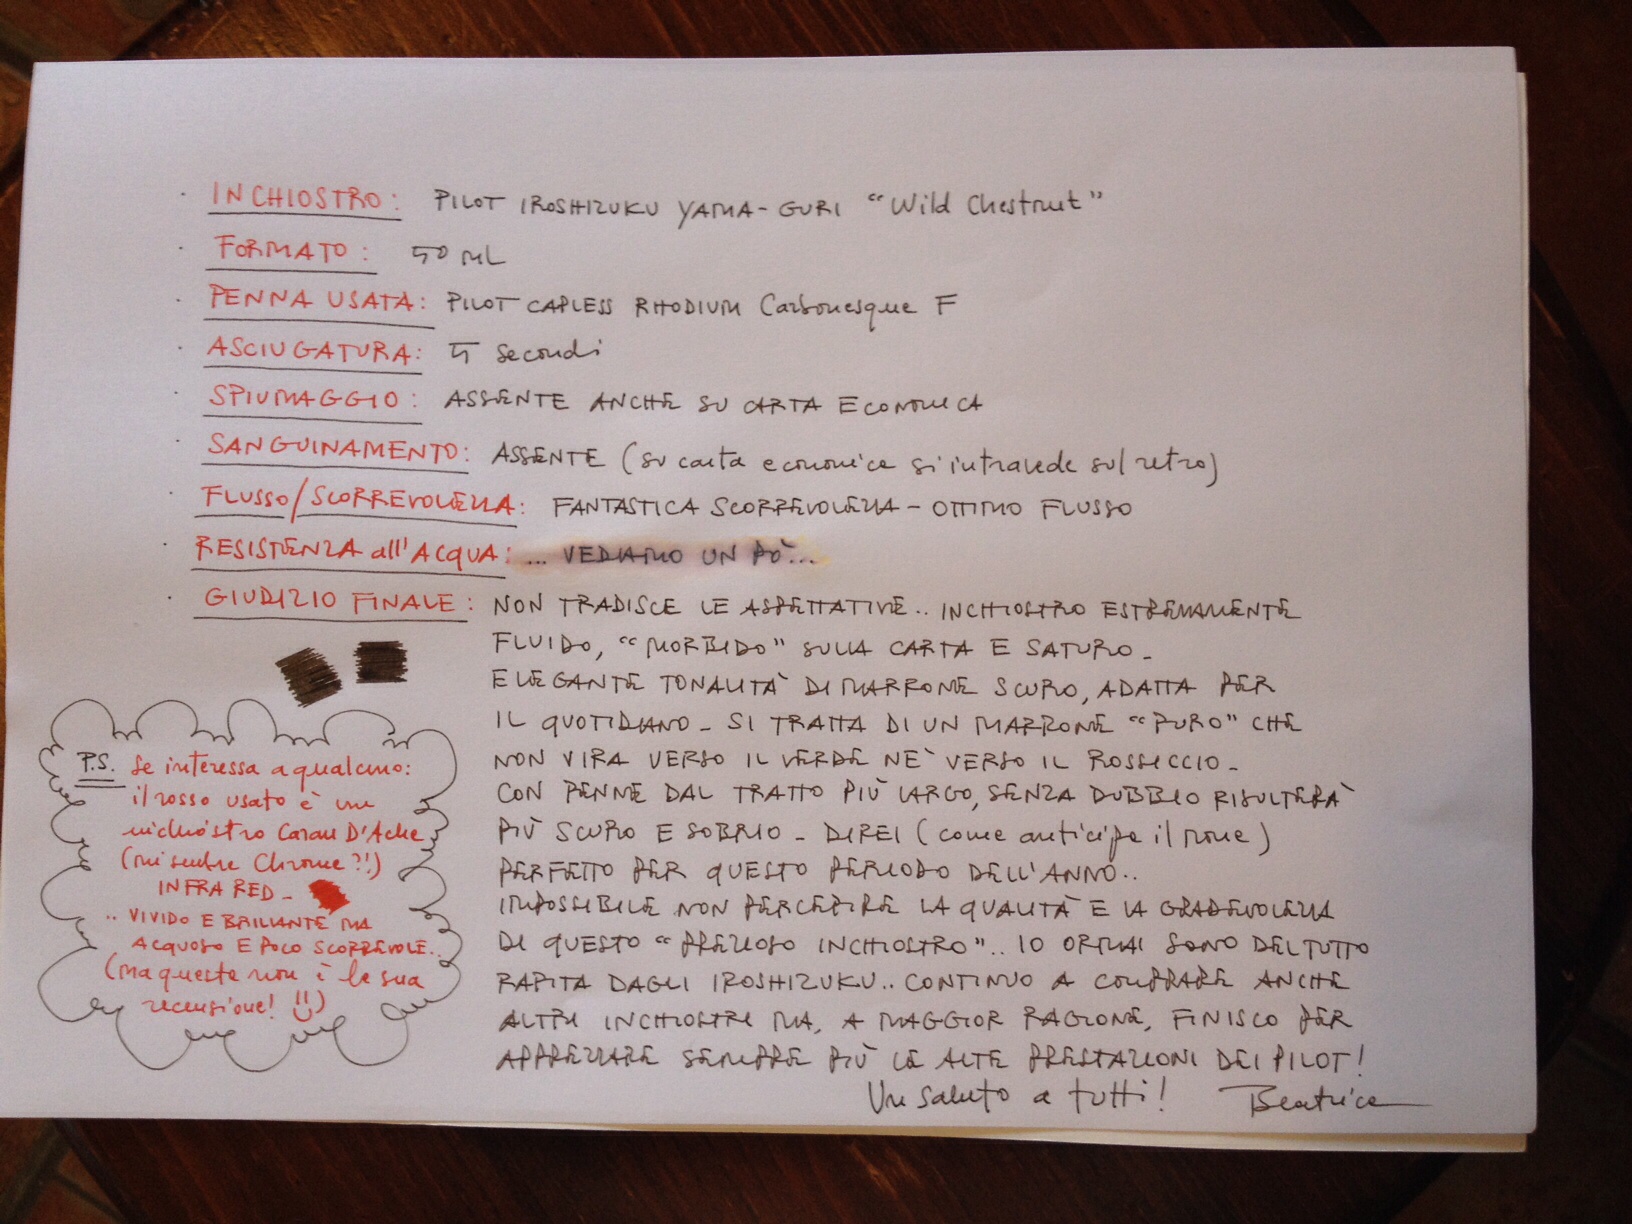 · INCHIOSTRO: PILOT IROSHIZUKU YAMA-GURI "Wild Chestnut"
· FORMATO: 50 mL
· PENNA USATA: PILOT CAPLESS RHODIUM Carbonesque F
· ASCIUGATURA: 5 secondi
· SPIUMAGGIO: ASSENTE ANCHE SU CARTA ECONOMICA
· SANGUINAMENTO: ASSENTE (su carta economica si intravede sul retro)
· FLUSSO/SCORREVOLEZZA: FANTASTICA SCORREVOLEZZA - OTTIMO FLUSSO
· RESISTENZA all'ACQUA: ... VEDIAMO UN PÒ...
· GIUDIZIO FINALE: NON TRADISCE LE ASPETTATIVE.. INCHIOSTRO ESTREMAMENTE
FLUIDO, "MORBIDO" SULLA CARTA E SATURO -
ELEGANTE TONALITÀ DI MARRONE SCURO, ADATTA PER
IL QUOTIDIANO - SI TRATTA DI UN MARRONE "PURO" CHE
NON VIRA VERSO IL VERDE NE' VERSO IL ROSSICCIO -
CON PENNE DAL TRATTO PIÙ LARGO, SENZA DUBBIO RISULTERÀ
PIÙ SCURO E SOBRIO - DIREI (come anticipa il nome)
PERFETTO PER QUESTO PERIODO DELL'ANNO..
IMPOSSIBILE NON PERCEPIRE LA QUALITÀ E LA GRADEVOLEZZA
DI QUESTO "PREZIOSO INCHIOSTRO".. IO ORMAI SONO DEL TUTTO
RAPITA DAGLI IROSHIZUKU.. CONTINUO A COMPRARE ANCHE
ALTRI INCHIOSTRI MA, A MAGGIOR RAGIONE, FINISCO PER
APPREZZARE SEMPRE PIÙ LE ALTE PRESTAZIONI DEI PILOT!
Un saluto a tutti! Beatrice
P.S. Se interessa a qualcuno:
il rosso usato è un
inchiostro Caran D'Ache
(mi sembra Chrome?!)
INFRA RED -
.. VIVIDO E BRILLANTE MA
ACQUOSO E POCO SCORREVOLE..
(ma questa non è la sua
recensione! !!)